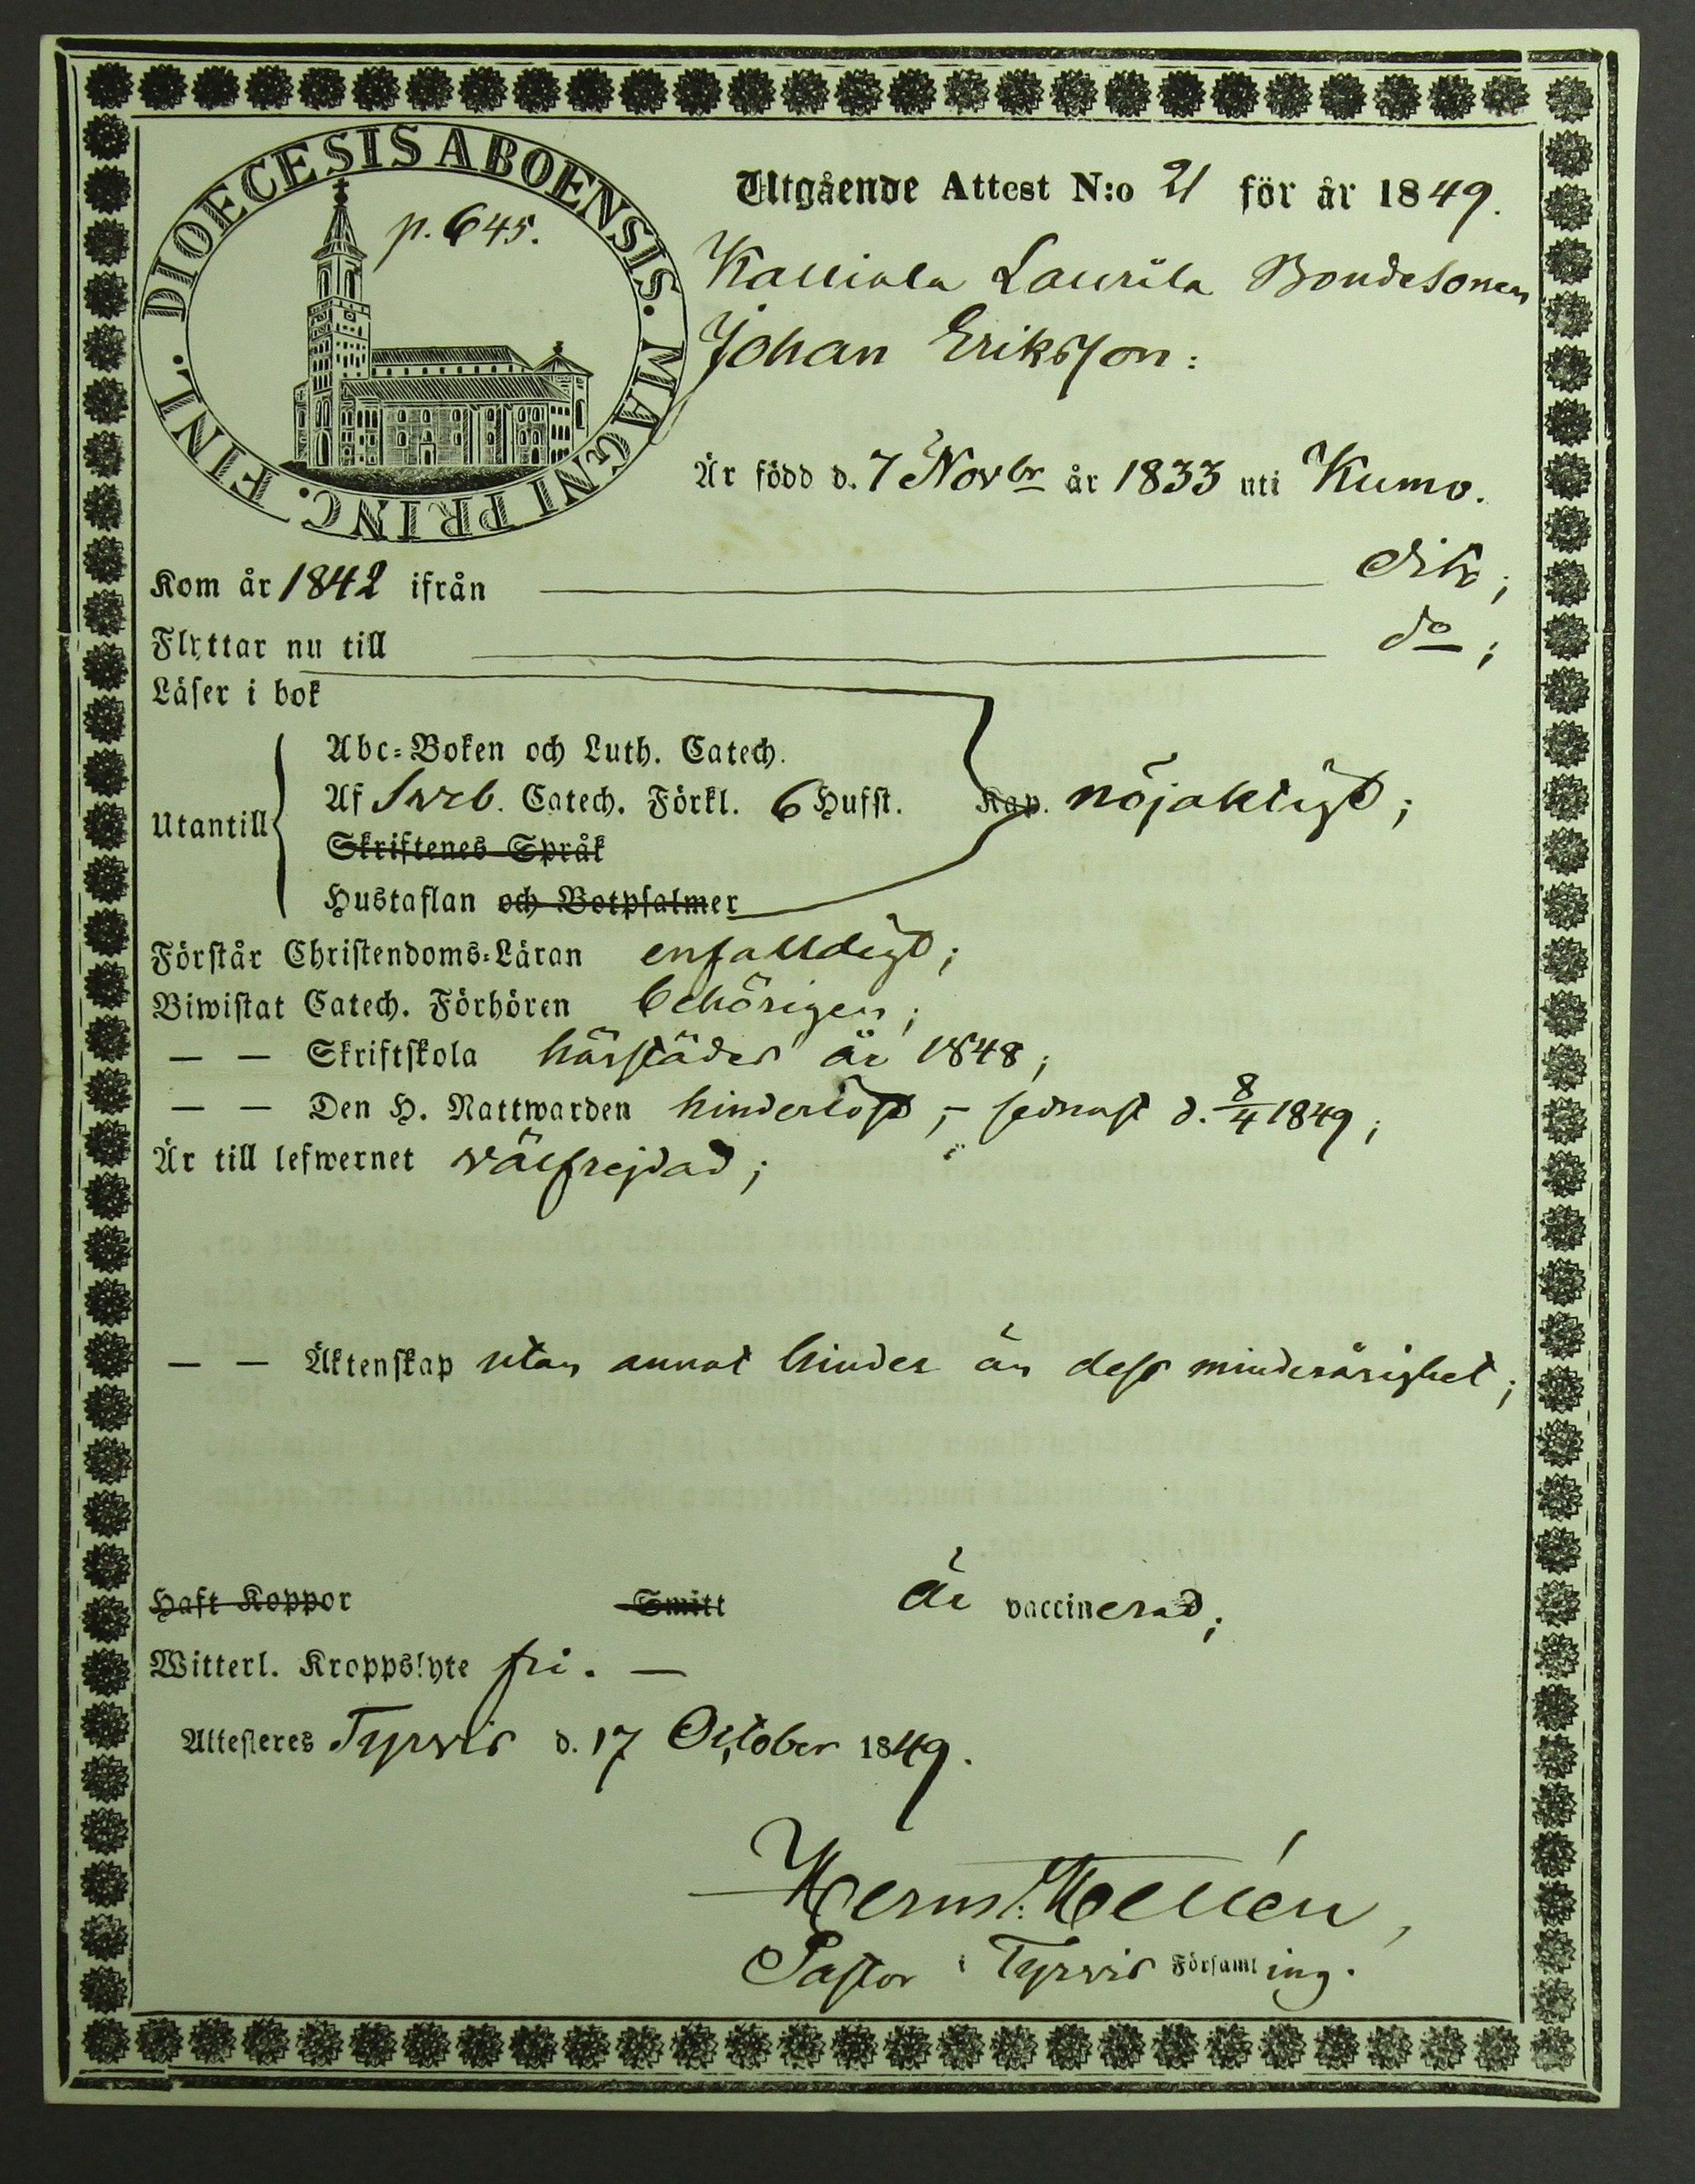 DIOECESIS ABOENSIS. MAGNI PRINC. FINL.
p. 645.
Utgående Attest N:o 21 för år 1849.
Kalliala Laurila Bondesonen
Johan Eriksson:
Är född d. 7 Novbr år 1833 uti Kumo.
Kom år 1842 ifrån dito;
Flyttar nu till do;
Läser i bok
Abc-Boken och Luth. Catech.
Utantill Af Sweb. Catech. Förkl. 6 Hufst. Kap. nöjaktigt;
Skriftenes Språk
Hustaflan och Botpsalmer
Förstår Christendoms-Läran enfalldigt;
Biwistat Catech. Förhören behörigen;
— — Skriftskola härstädes år 1848;
— — Den H. Nattwarden hinderlöst, - sednast d. 8/4 1849;
Är till lefwernet välfrejdad;
— — Äktenskap utan annat hinder än dess minderårighet;
Haft Koppor Smitt är vaccinerad;
Witterl. Kroppslyte fri. —
Attesteres Tyrvis d. 17 October 1849.
Herm: Hellén,
Pastor i Tyrvis Församling.